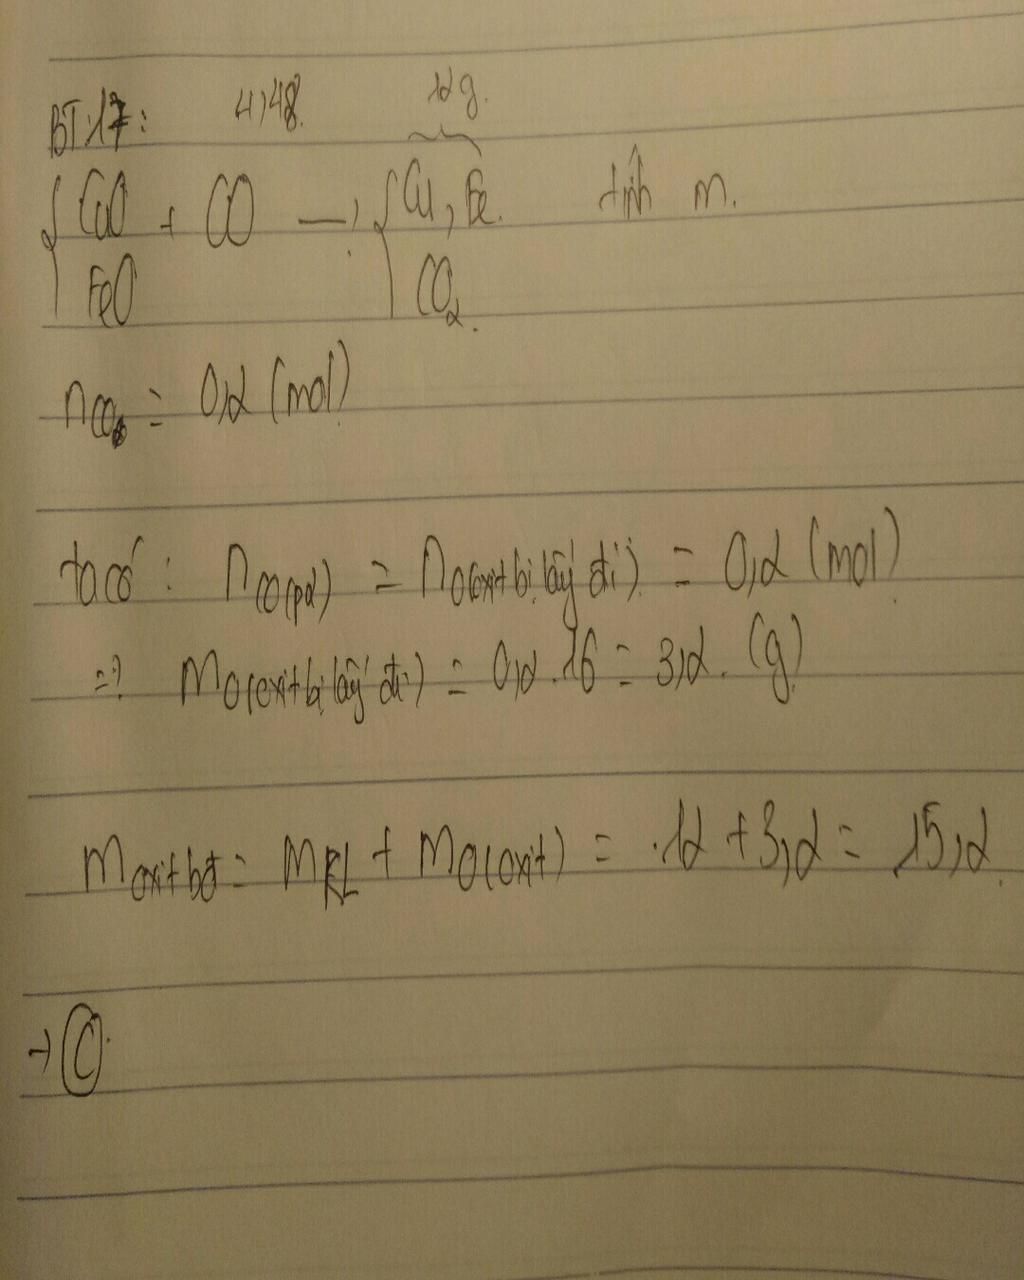 BT 17: 4,48 12g.
{ CuO + CO → { Cu, Fe. tính m.
FeO CO2.
nCO = 0,2 (mol)
ta có: nCO(pứ) = nO(oxit bị lấy đi) = 0,2 (mol)
=> mO(oxit bị lấy đi) = 0,2 . 16 = 3,2. (g)
moxit bđ = mKL + mO(oxit) = 12 + 3,2 = 15,2.
→ C